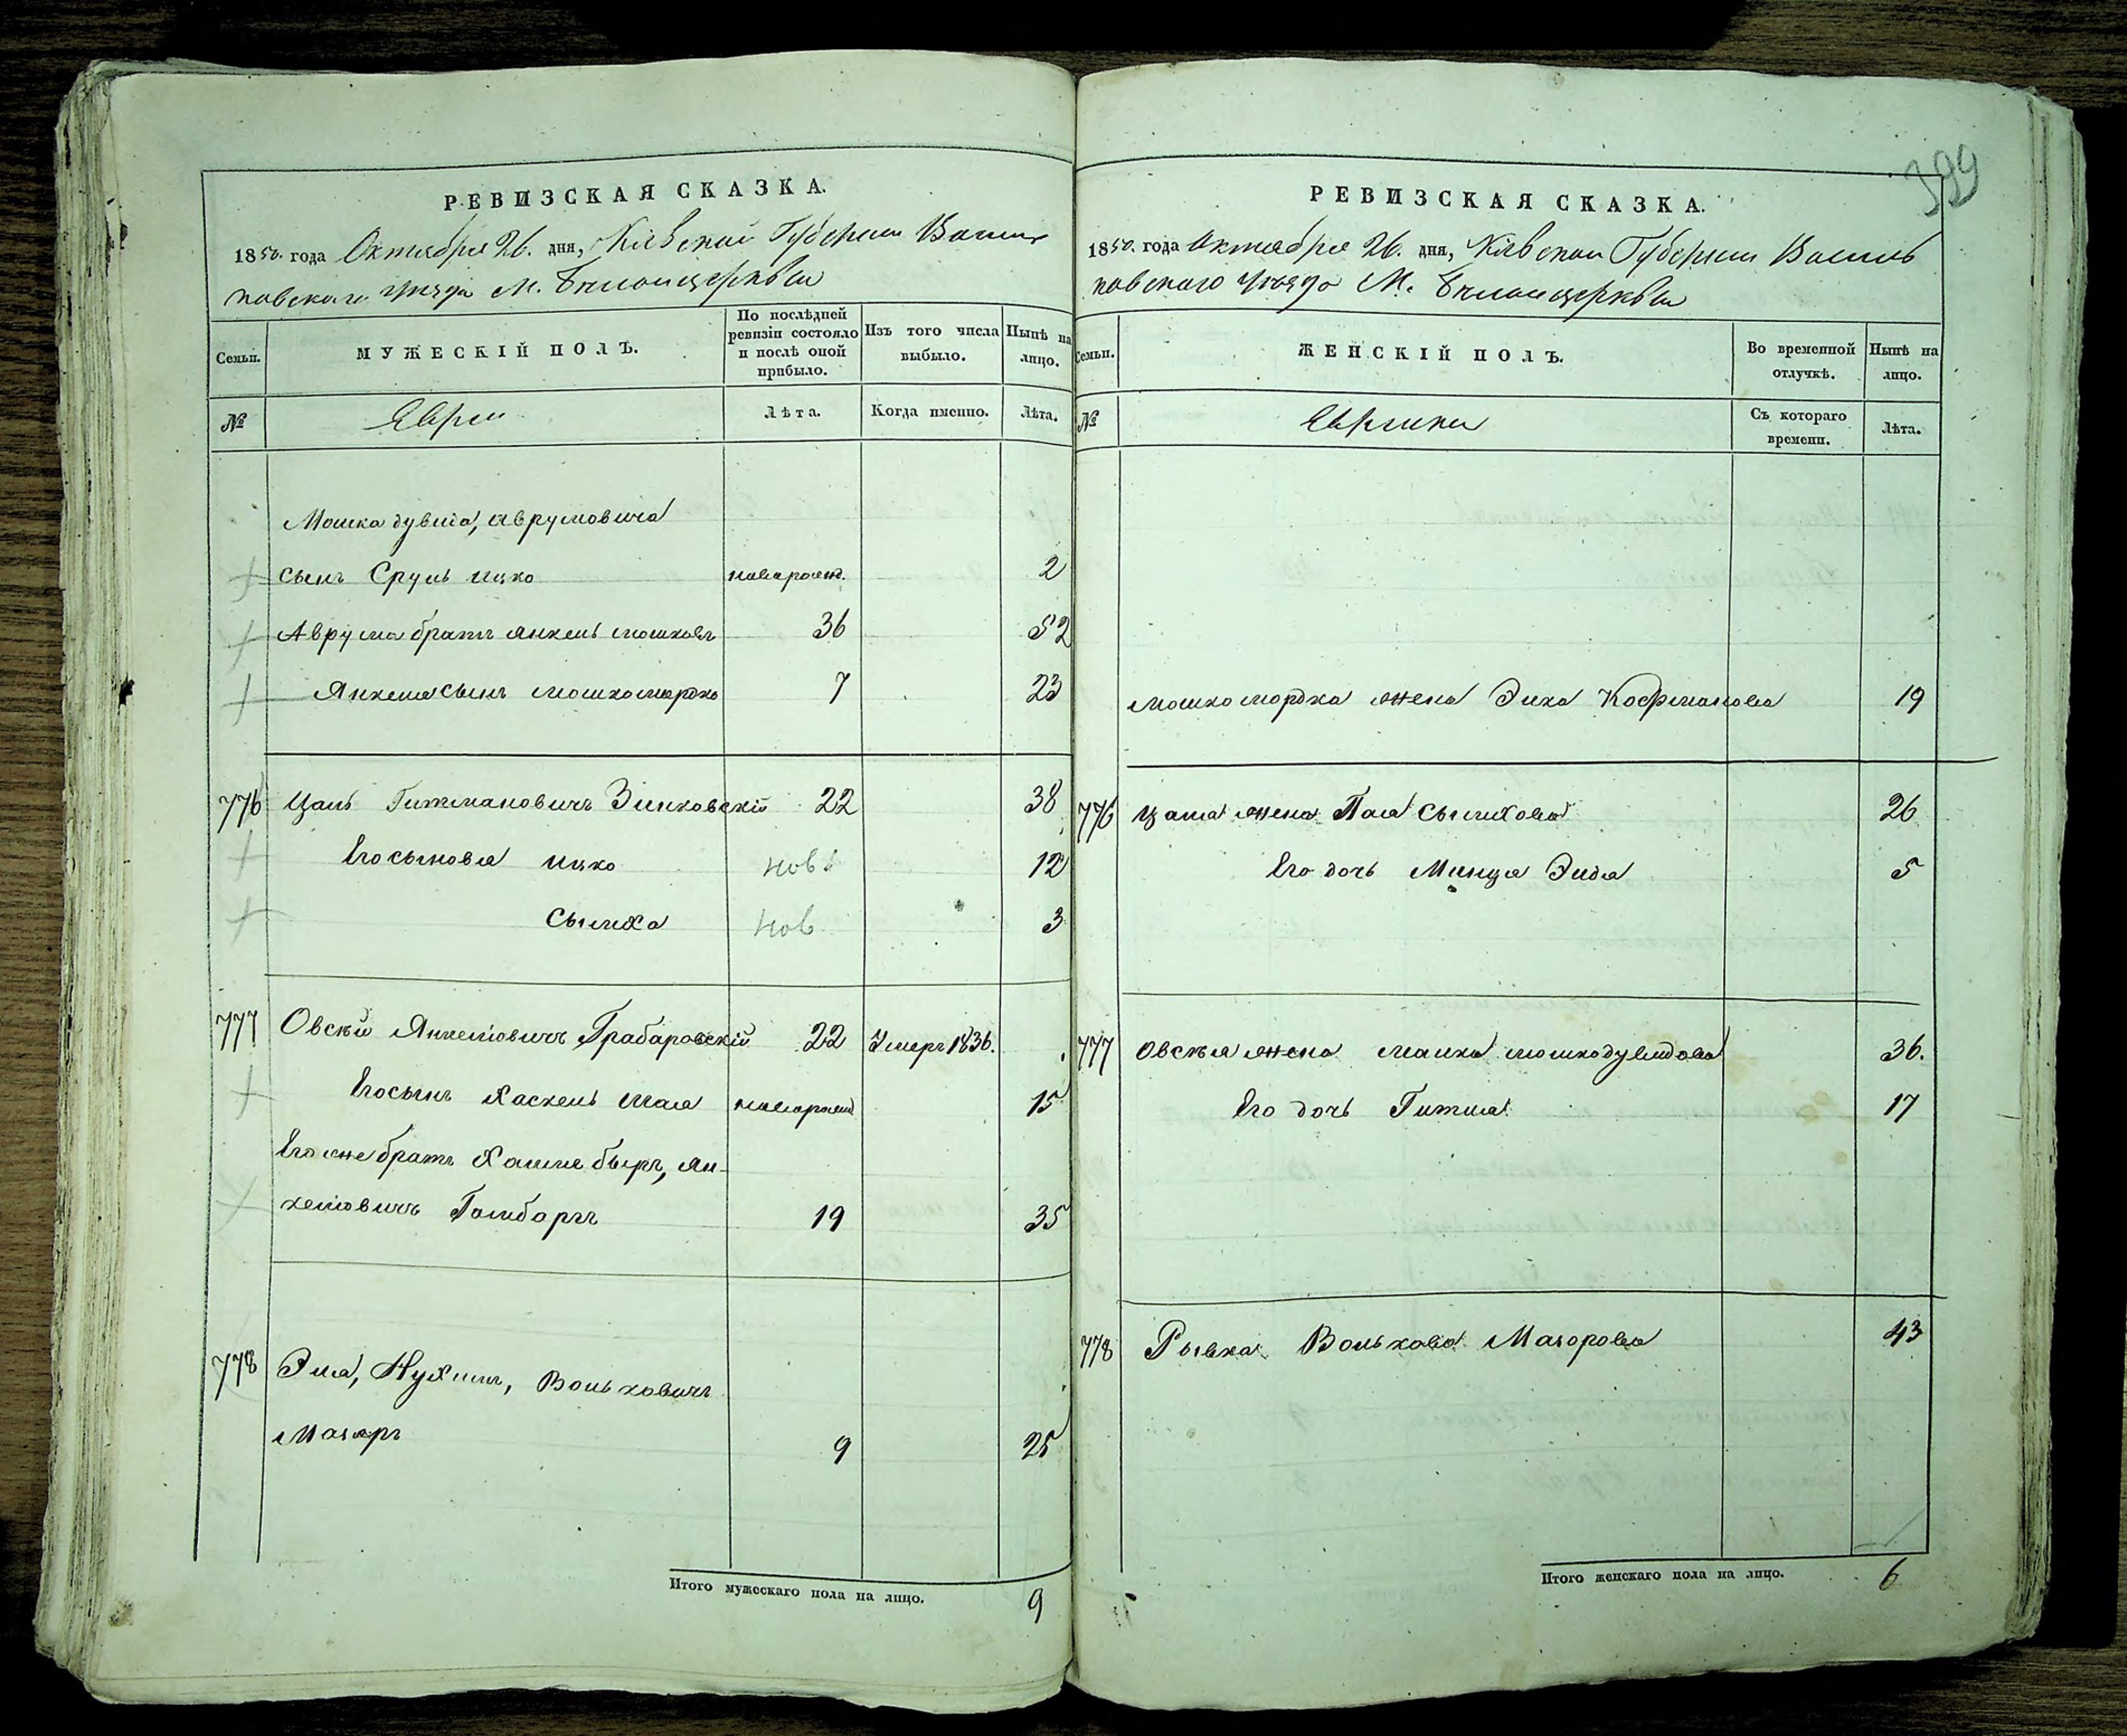 399
РЕВИЗСКАЯ СКАЗКА.
1850. года Октября 26. дня, Кіевской Губерніи Василь
ковскаго уѣзда М. Бѣлойцеркви
Семьи.
МУЖЕСКІЙ ПОЛЪ.
По послѣдней ревизіи состояло и послѣ оной прибыло.
Изъ того числа выбыло.
Нынѣ на лицо.
№
Евреи
Лѣта.
Когда именно.
Лѣта.
Мошка дувида, Аврумовича
сынъ Сруль ицко новорожд. 2
Аврума братъ янкель мошковъ 36 52
Янкеля сынъ мошкомордко 7 23
776 Цаль Гитмановичъ Зинковскій 22 38
Его сыновья ицко нов 12
Сымха нов 3
777 Овсѣй Янкелiовичъ Грабаровскій 22 Умеръ 1836.
Его сынъ Хаскель новорожд 15
Его же братъ беръ, ян-
келiовичъ 19 35
778 Эля, Нухимъ, Вольковичъ
Мазяръ 9 25
Итого мужескаго пола на лицо. 9
РЕВИЗСКАЯ СКАЗКА.
1850. года Октября 26. дня, Кіевской Губерніи Василь
ковскаго уѣзда М. Бѣлойцеркви
Семьи.
ЖЕНСКІЙ ПОЛЪ.
Во временной отлучкѣ.
Нынѣ на лицо.
№
Еврейки
Съ котораго времени.
Лѣта.
мошкомордка жена Эйка Кофманова 19
776 Цаля жена Пая Сымхова 26
Его дочь Минця Эйдя 5
777 Овсѣя жена малка мошкодувидова 36.
Его дочь Гитля 17
778 Рывка Волькова Мазорова 43
Итого женскаго пола на лицо. 6